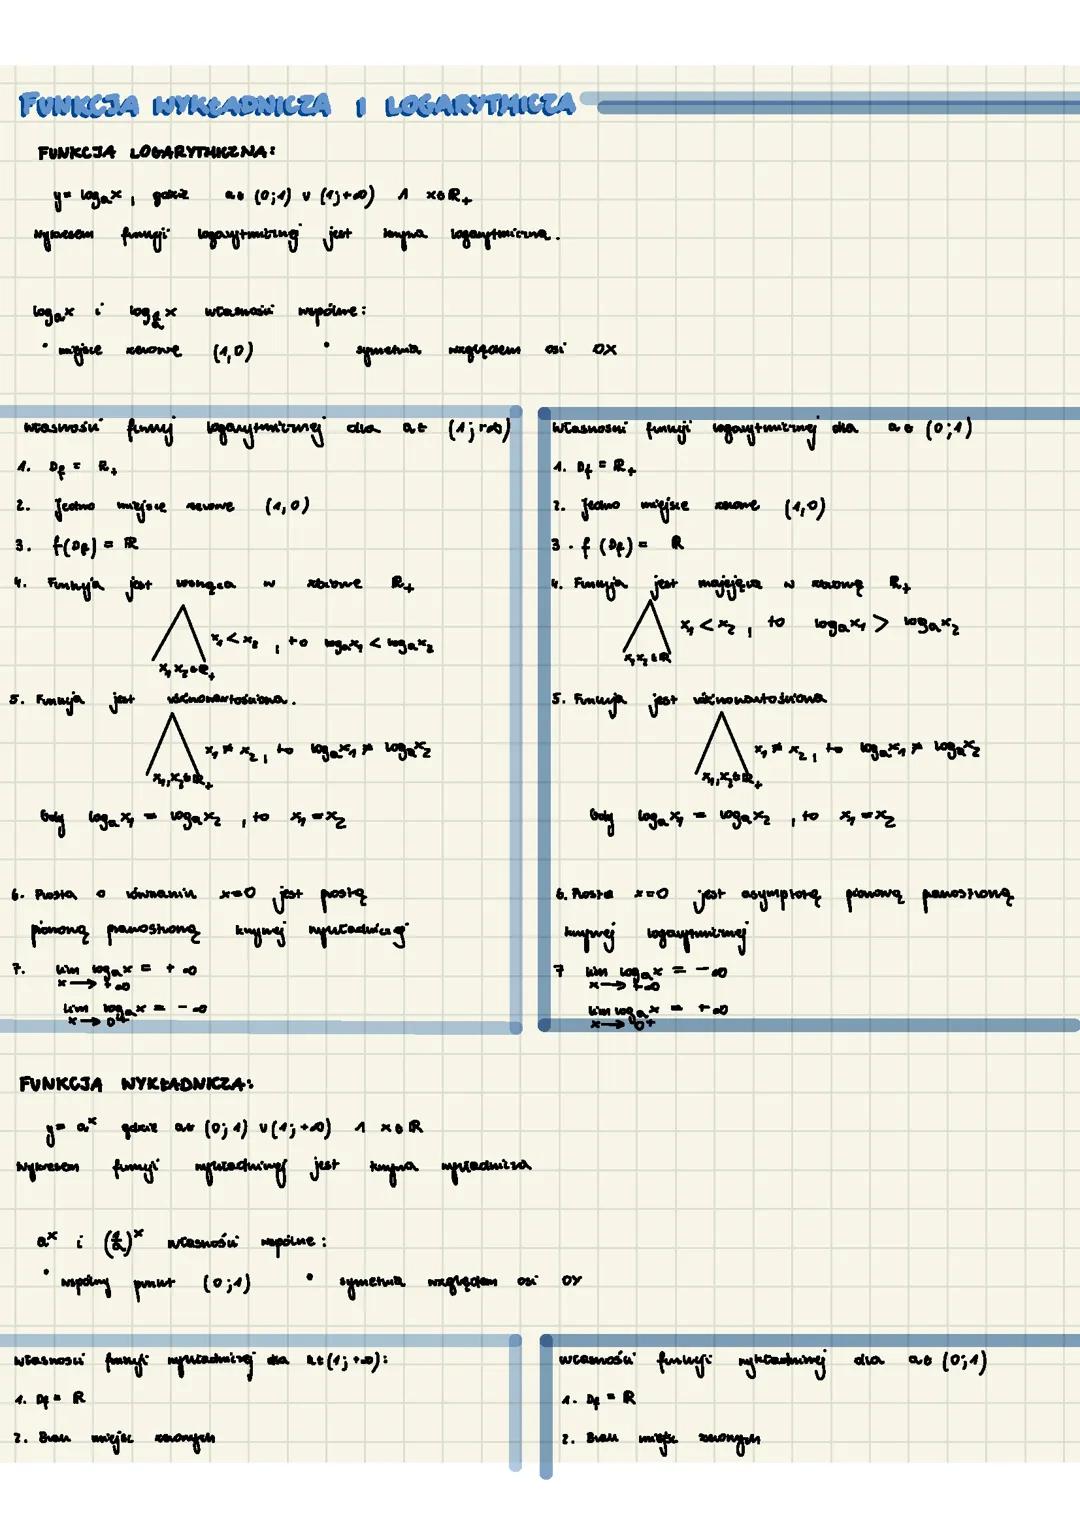 FUNKCJA WYKŁADNICZA I LOGARYTMICZA
FUNKCJA LOGARYTMICZNA:
y = logₐx, gdzie a ∈ (0;1) ∪ (1;+∞) ∧ x ∈ R₊
Wykresem funkcji logarytmicznej jest krzywa logarytmiczna.
logₐx i log_(1/a) x własności wspólne:
• miejsce zerowe (1,0) • symetria względem osi OX
Własności funkcji logarytmicznej dla a ∈ (1;+∞)
1. Df = R₊
2. Jedno miejsce zerowe (1,0)
3. f(Df) = R
4. Funkcja jest rosnąca w zbiorze R₊
⋀ x₁,x₂∈R₊ x₁ < x₂, to logₐx₁ < logₐx₂
5. Funkcja jest różnowartościowa.
⋀ x₁,x₂∈R₊ x₁ ≠ x₂, to logₐx₁ ≠ logₐx₂
Gdy logₐx₁ = logₐx₂, to x₁ = x₂
6. Prosta o równaniu x=0 jest prostą
pionową prawostroną krzywej wykładniczej
7. lim x→+∞ logₐx = +∞
lim x→0+ logₐx = -∞
Własności funkcji logarytmicznej dla a ∈ (0;1)
1. Df = R₊
2. Jedno miejsce zerowe (1,0)
3. f(Df) = R
4. Funkcja jest malejąca w R₊
⋀ x₁,x₂∈R x₁ < x₂, to logₐx₁ > logₐx₂
5. Funkcja jest różnowartościowa
⋀ x₁,x₂∈R₊ x₁ ≠ x₂, to logₐx₁ ≠ logₐx₂
Gdy logₐx₁ = logₐx₂, to x₁ = x₂
6. Prosta x=0 jest asymptotą pionową prawostroną
krzywej logarytmicznej
7 lim x→+∞ logₐx = -∞
lim x→0+ logₐx = +∞
FUNKCJA WYKŁADNICZA:
y = aˣ gdzie a∈ (0;1) ∪ (1;+∞) ∧ x ∈ R
Wykresem funkcji wykładniczej jest krzywa wykładnicza
aˣ i (1/a)ˣ własności wspólne:
• wspólny punkt (0;1) • symetria względem osi OY
Własności funkcji wykładniczej dla a∈(1;+∞):
1. Df = R
2. Brak miejsc zerowych
Własności funkcji wykładniczej dla a∈ (0;1)
1. Df = R
2. Brak miejsc zerowych